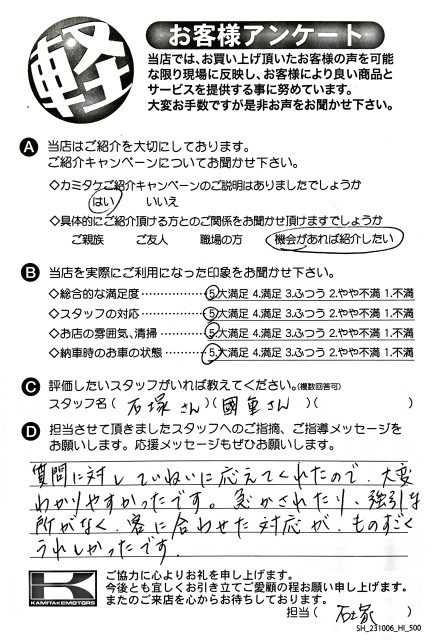 軽
お客様アンケート
当店では、お買い上げ頂いたお客様の声を可能
な限り現場に反映し、お客様により良い商品と
サービスを提供する事に努めています。
大変お手数ですが是非お声をお聞かせ下さい。
A 当店はご紹介を大切にしております。
ご紹介キャンペーンについてお聞かせ下さい。
◇カミタケご紹介キャンペーンのご説明はありましたでしょうか
はい いいえ
◇具体的にご紹介頂ける方とのご関係をお聞かせ頂けますでしょうか
ご親族 ご友人 職場の方 機会があれば紹介したい
B 当店を実際にご利用になった印象をお聞かせ下さい。
◇総合的な満足度………………5.大満足 4.満足 3.ふつう 2.やや不満 1.不満
◇スタッフの対応………………5.大満足 4.満足 3.ふつう 2.やや不満 1.不満
◇お店の雰囲気、清掃…………5.大満足 4.満足 3.ふつう 2.やや不満 1.不満
◇納車時のお車の状態…………5.大満足 4.満足 3.ふつう 2.やや不満 1.不満
C 評価したいスタッフがいれば教えてください。(複数回答可)
スタッフ名( 石塚さん )( 國重さん )( )
D 担当させて頂きましたスタッフへのご指摘、ご指導メッセージを
お願いします。応援メッセージもぜひお願いします。
質問に対していねいに応えてくれたので、大変
わかりやすかったです。急かされたり、強引な
所がなく、客に合わせた対応が、ものすごく
うれしかったです。
K
KAMITAKEMOTORS
ご協力に心よりお礼を申し上げます。
今後とも宜しくお引き立てご愛顧の程お願い申し上げます。
またのご来店を心からお待ちしております。
担当( 石塚 )
SH_231006_HI_500